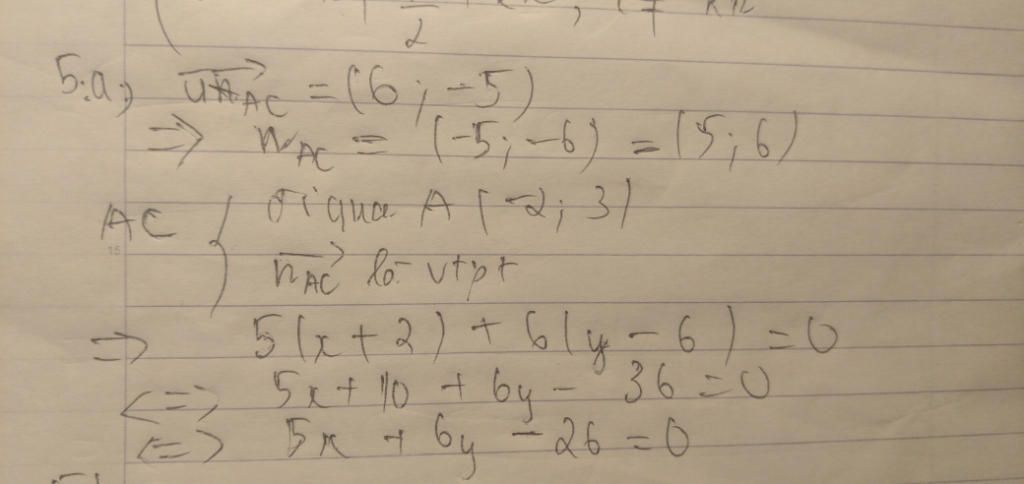 2
5.a) unAC = (6; -5)
=> nAC = (-5; -6) = (5; 6)
AC { đi qua A(-2; 3)
nAC là vtpt
=> 5(x + 2) + 6(y - 6) = 0
<=> 5x + 10 + 6y - 36 = 0
<=> 5x + 6y - 26 = 0